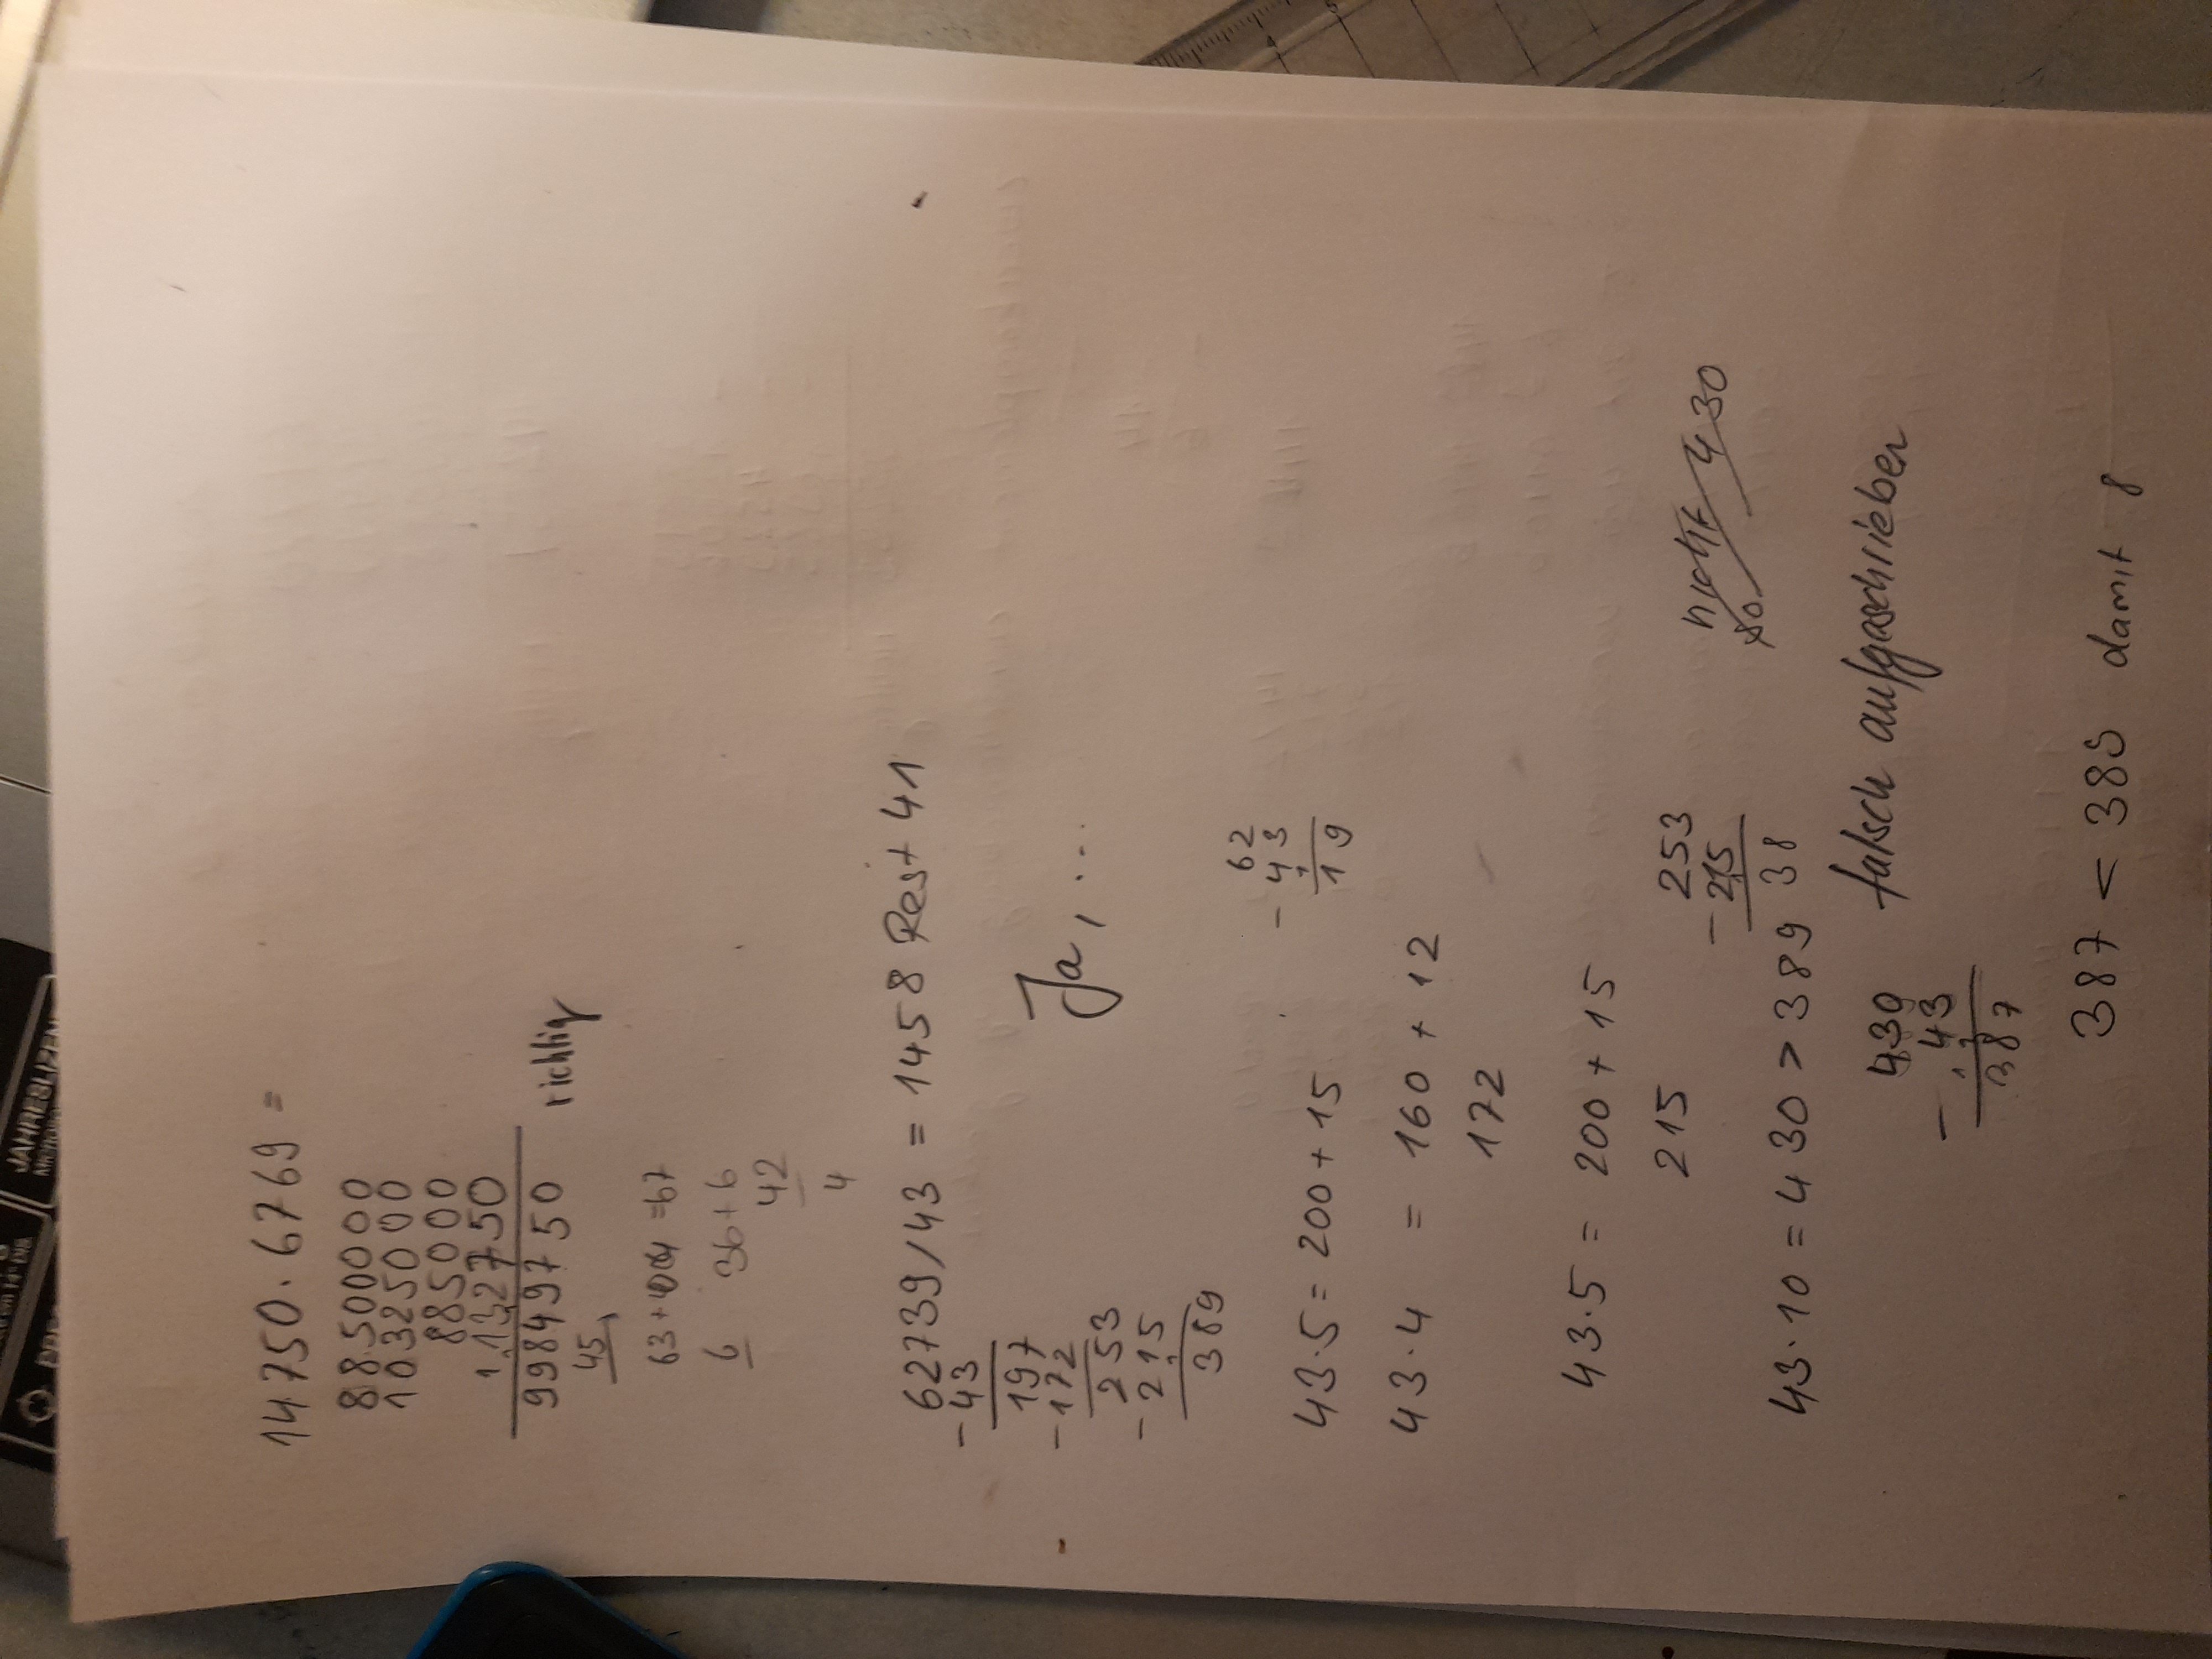 14750 · 6769 =
88500000
10325000
885000
132750
1 1
99849750 richtig
45
63+4 = 67
6 36+6
42
4
62739/43 = 1458 Rest 41
-43
197 Ja, ...
-172
253
-215
389
62
- 43
1
19
43·5 = 200+15
43·4 = 160+12
172
43·5 = 200+15
215
253
-215
38
nicht 430
43·10 = 430 > 389
falsch aufgaschrieben
430
- 43
1 1
387
387 < 389 damit 8
JAHRESLIZEN